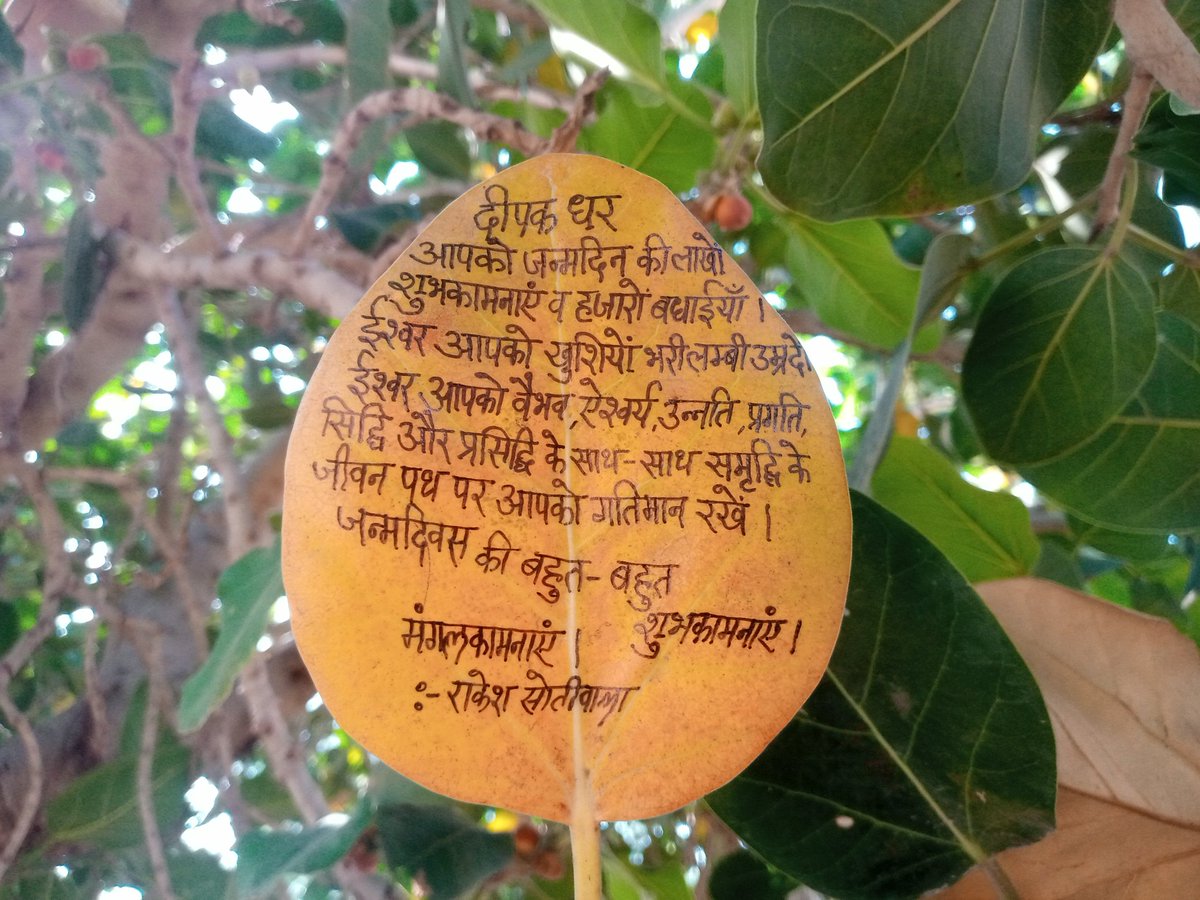 दीपक धर
आपको जन्मदिन की लाखों
शुभकामनाएं व हजारों बधाईयाँ ।
ईश्वर आपको खुशियों भरी लम्बी उम्र दे,
ईश्वर आपको वैभव, ऐश्वर्य, उन्नति, प्रगति,
सिद्धि और प्रसिद्धि के साथ-साथ समृद्धि के
जीवन पथ पर आपको गतिमान रखें ।
जन्मदिवस की बहुत-बहुत
मंगलकामनाएं । शुभकामनाएं ।
:- राकेश सोतीवाला